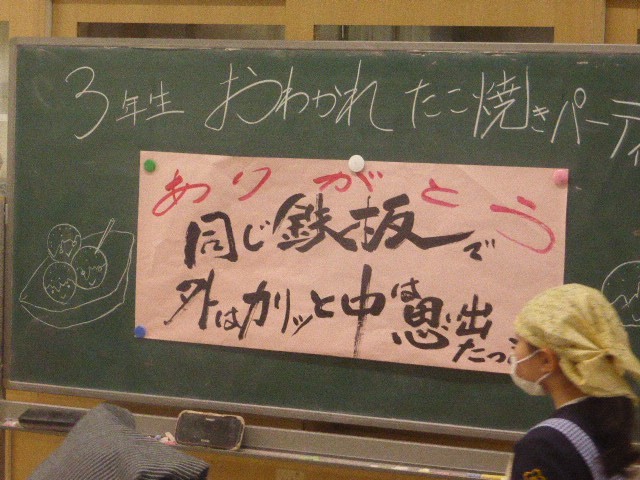 3年生 おわかれ たこ焼きパーティ
ありがとう
同じ鉄板で
外はカリッと中は思い出
たっ